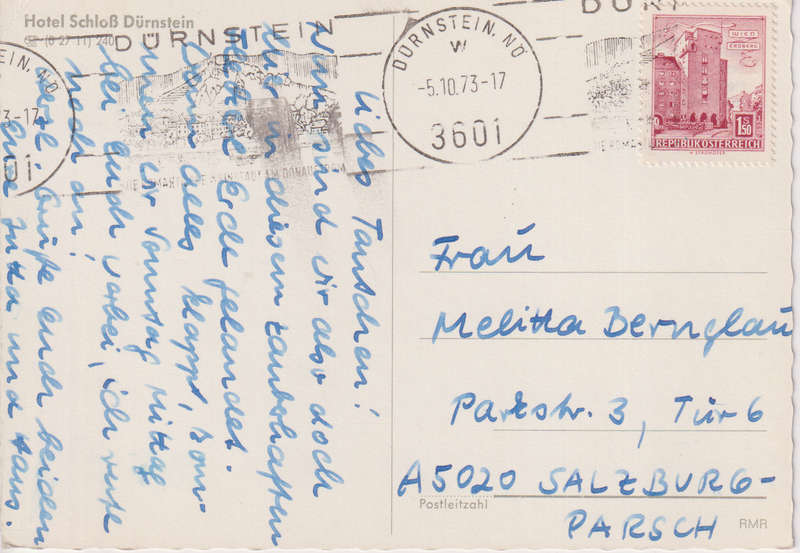 Hotel Schloß Dürnstein
(0 27 11) 240
DÜRNSTEIN
DÜRNSTEIN, NÖ
W
-5.10.73-17
3601
DÜRN
EIN, NÖ
3-17
01
AM DONAUSTROM
WIEN
ERDBERG
1S50
REPUBLIK ÖSTERREICH
Liebes Tantchen!
Nun sind wir also doch
hier in diesem zauberhaften
Erde gelandet.
Wenn alles klappt, kom-
men wir Sonntag Mittag
bei euch vorbei, ich rufe
noch an!
Herzl. Grüße euch beiden
Eure Jutta und Hans.
Frau
Melitta Bernglau
Parkstr. 3, Tür 6
A5020 SALZBURG-
Postleitzahl
PARSCH
RMR